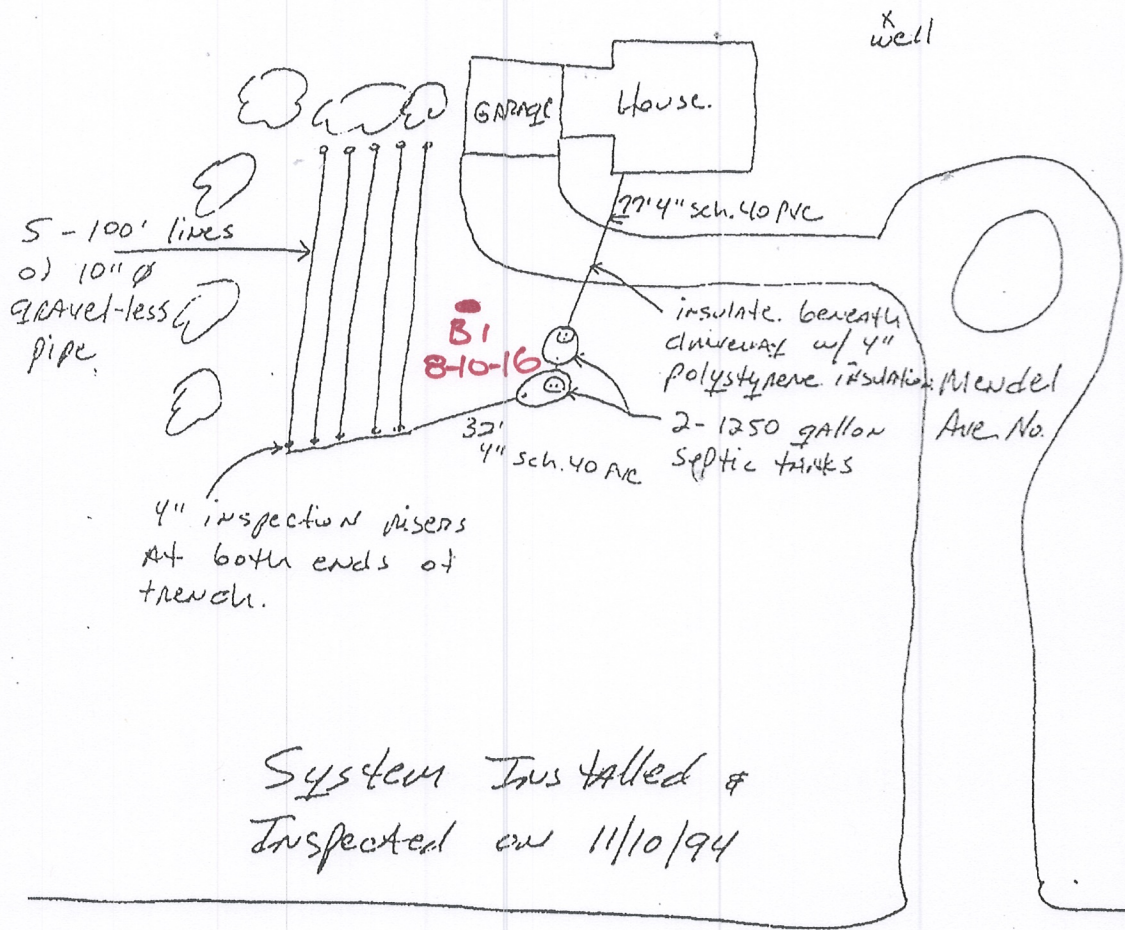 x
well
GARAGE
House.
77' 4" sch. 40 PVC
5 - 100' lines
of 10" ø
gravel-less
pipe.
B1
8-10-16
insulate beneath
driveway w/ 4"
polystyrene insulation.
Mendel
Ave. No.
2 - 1250 gallon
septic tanks
32'
4" sch. 40 PVC
4" inspection risers
At both ends of
trench.
System Installed &
Inspected on 11/10/94